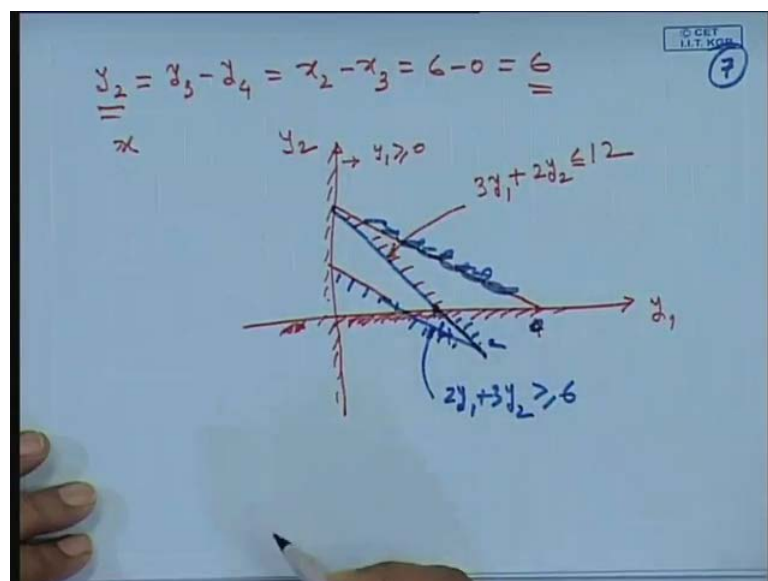 © CET
I.I.T. KGP
7
y₂ = y₃ - y₄ = x₂ - x₃ = 6 - 0 = 6
x
y₂
→ y₁ ≥ 0
3y₁ + 2y₂ ≤ 12
y₁
4
2y₁ + 3y₂ ≥ 6